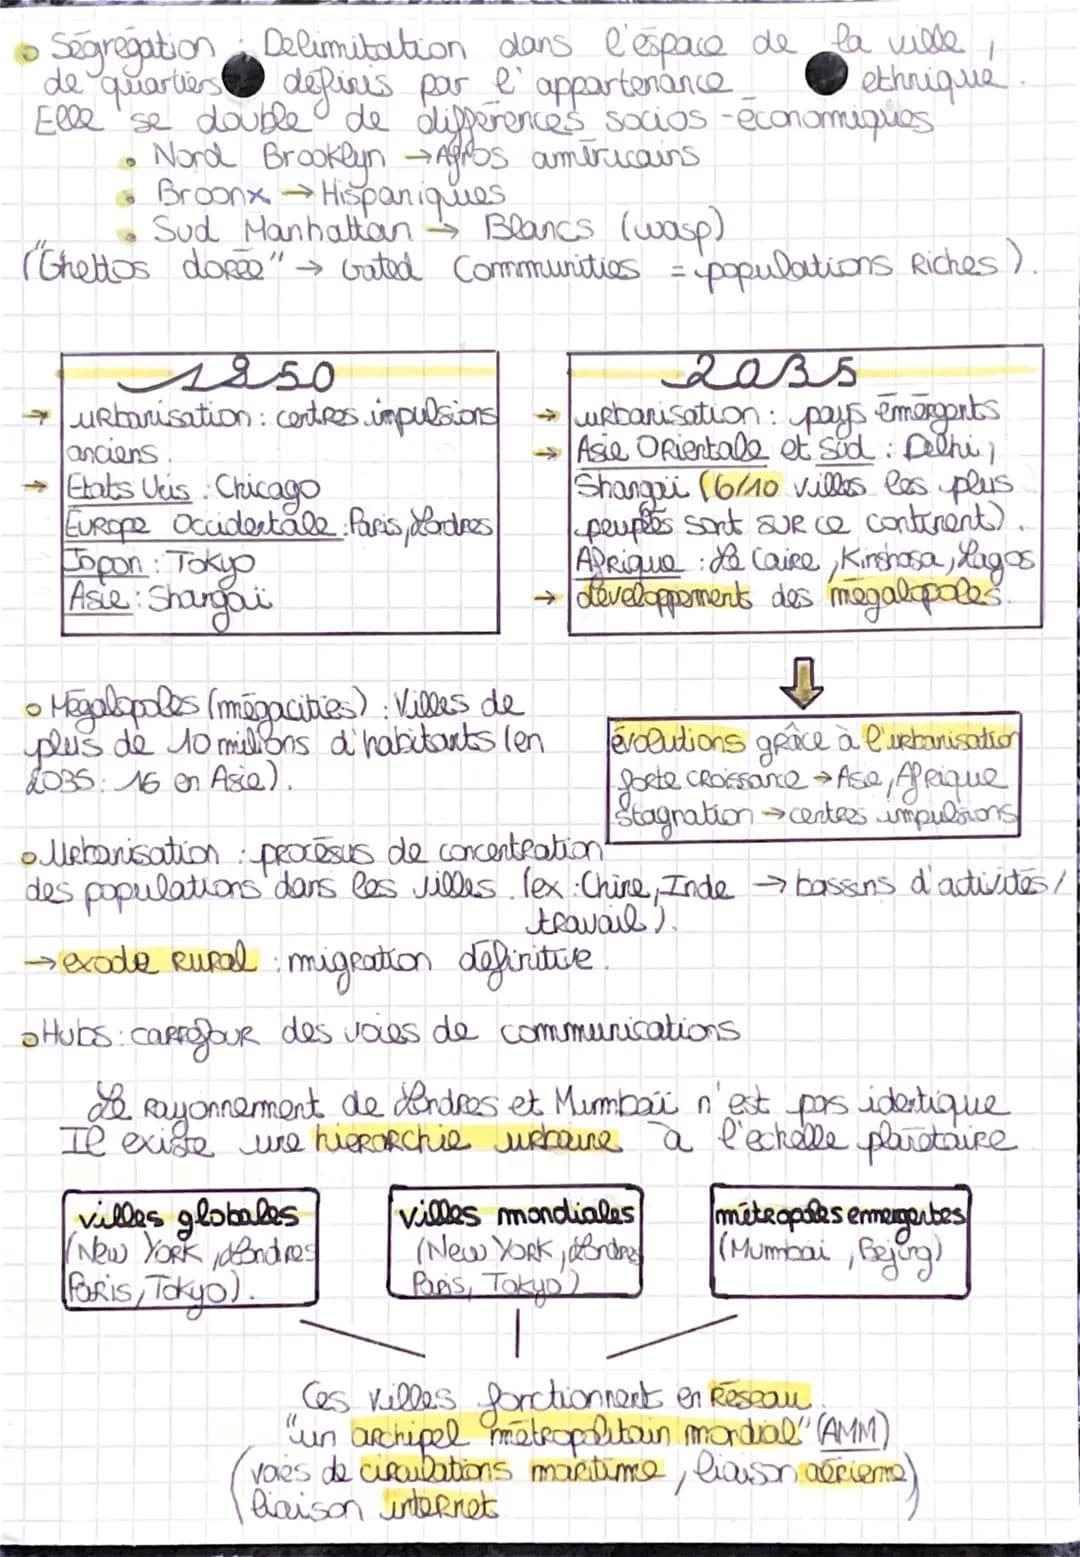 Ségrégation : Delimitation dans l'éspace de la ville,
de quartiers définis par l'appartenance ethnique.
Elle se double de différences socios-économiques
Nord Brooklyn → Afros américains
Broonx → Hispaniques
Sud Manhattan → Blancs (wasp)
("Ghettos dorée" → Gated Communities = populations Riches).
1950
→ urbanisation : centres impulsions
anciens.
→ Etats Unis : Chicago
Europe Occidentale : Paris, Londres
Japon : Tokyo
Asie : Shangaï
2035
→ urbanisation : pays émergents
→ Asie Orientale et Sud : Delhi,
Shangaï (6/10 villes les plus
peuplés sont sur ce continent).
Afrique : Le Caire, Kinshasa, Lagos
→ développements des mégalopoles.
Mégalopoles (mégacities) : Villes de
plus de 10 milions d'habitants (en
2035 : 16 en Asie).
évolutions grâce à l'urbanisation
forte croissance → Asie, Afrique
Stagnation → centres impulsions
Urbanisation : procésus de concentration
des populations dans les villes. (ex : Chine, Inde → bassins d'activités /
travail).
→ exode rural : migration définitive.
Hubs : carrefour des voies de communications
Le rayonnement de Londres et Mumbaï n'est pas identique
Il existe une hierarchie urbaine à l'échelle planétaire
villes globales
(New York, Londres
Paris, Tokyo).
villes mondiales
(New York, Londres
Paris, Tokyo)
métropoles emmergentes
(Mumbai, Bejing)
Ces villes fonctionnent en Réseau.
"un archipel métropolitain mondial" (AMM)
(voies de circulations maritime, liaison aérienne)
liaison internet